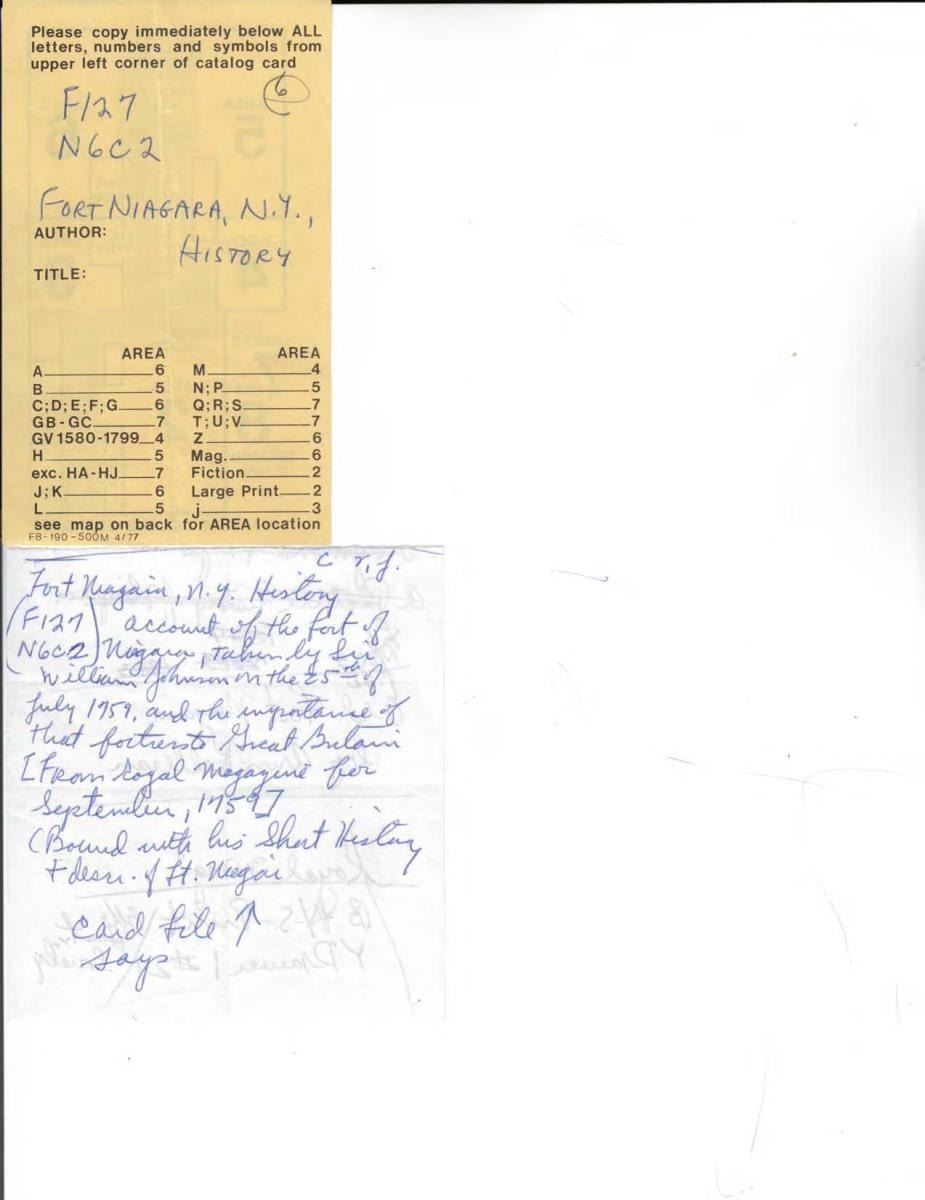 Please copy immediately below ALL
letters, numbers and symbols from
upper left corner of catalog card
6
F127
N6C2
FORT NIAGARA, N.Y.,
AUTHOR:
HISTORY
TITLE:
AREA AREA
A 6 M 4
B 5 N; P 5
C; D; E; F; G 6 Q; R; S 7
GB - GC 7 T; U; V 7
GV 1580-1799 4 Z 6
H 5 Mag. 6
exc. HA - HJ 7 Fiction 2
J; K 6 Large Print 2
L 5 j 3
see map on back for AREA location
FB-190-500M 4/77
Fort Niagara, N.Y. History
(F127) account of the fort of
(N6C2) Niagara, taken by Sir
William Johnson on the 25th of
July 1759, and the importance of
that fortress to Great Britain
[From Royal Magazine for
September, 1759]
(Bound with his Short History
+ descr. of Ft. Niagar
Card file ↑
says